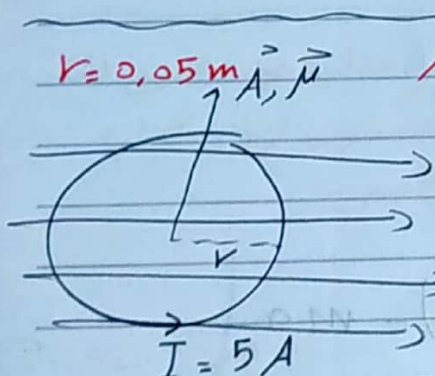 r = 0,05 m
A⃗, μ⃗
r
I = 5 A